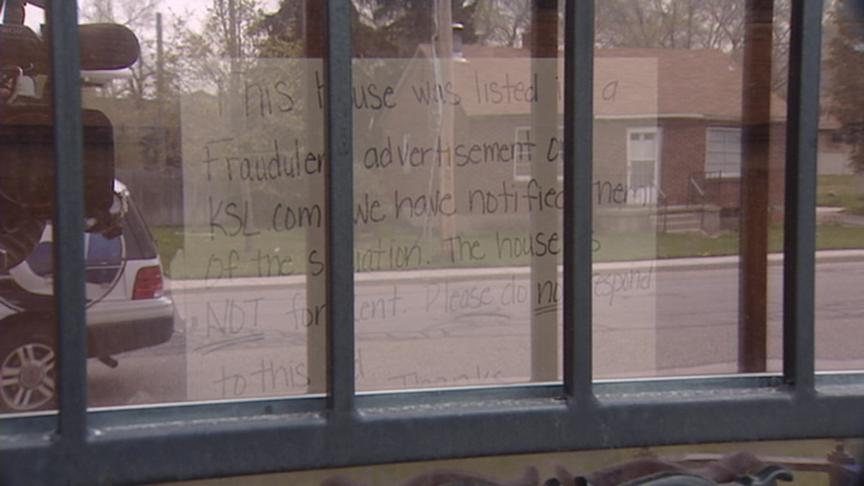 This house was listed in a
Fraudulent advertisement on
KSL.com We have notified them
of the situation. The house is
NOT for rent. Please do not respond
to this ad Thanks